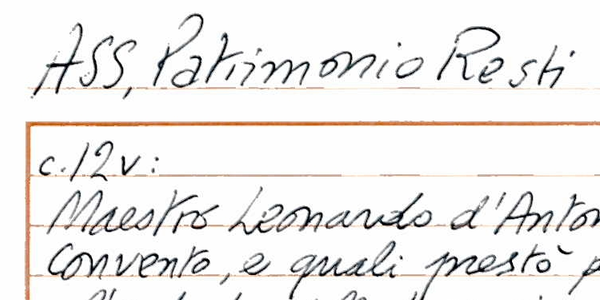 ASS, Patrimonio Resti
c. 12v:
Maestro Leonardo d'Anton
Convento, e quali prestò p